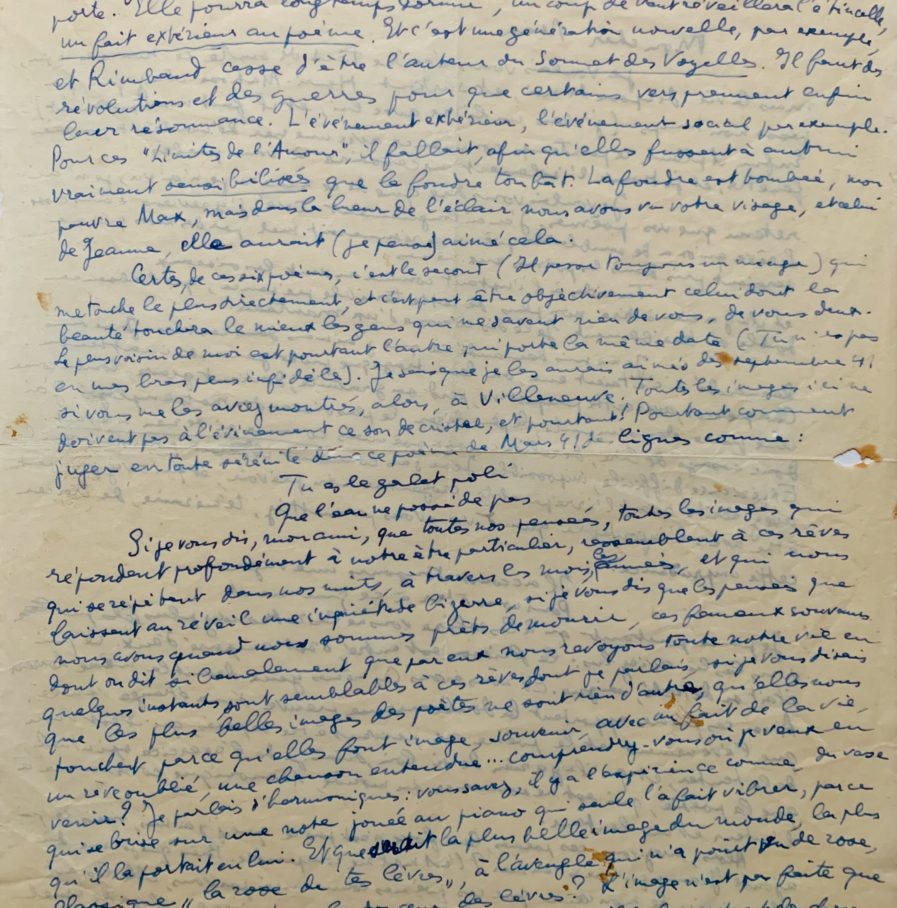 porte. Elle pourra longtemps dormir, un coup de vent réveillera l'étincelle,
un fait extérieur au poème. Et c'est une génération nouvelle, par exemple,
et Rimbaud cesse d'être l'auteur du Sonnet des Voyelles. Il faut des
révolutions et des guerres pour que certains vers prennent enfin
leur résonnance. L'événement extérieur, l'événement social par exemple.
Pour ces "Limites de l'Amour", il fallait, afin qu'elles fussent à autrui
vraiment sensibilisées que la foudre tombât. La foudre est tombée, mon
pauvre Max, mais dans la lueur de l'éclair nous avons vu votre visage, et celui
de Jeanne, elle aurait (je pense) aimé cela.
Certes, de ces six poèmes, c'est le second (Il passe toujours un nuage) qui
me touche le plus directement, et c'est peut être objectivement celui dont la
beauté touchera le mieux les gens qui ne savent rien de vous, de vous deux.
Le plus voisin de moi est pourtant l'autre qui porte la même date (Tu n'es pas
en mes bras plus infidèle). Je sais que je les aurais aimés dès septembre 41
si vous me les aviez montrés, alors, à Villeneuve. Toutes les images ici ne
doivent pas à l'événement ce son de cristal, et pourtant! Pourtant comment
juger en toute sérénité dans ce poème de Mars 41 de lignes comme :
Tu es le galet poli
Que l'eau ne possède pas
Si je vous dis, mon ami, que toutes nos pensées, toutes les images qui
répondent profondément à notre être particulier, ressemblent à ces rêves
qui se répètent dans nos nuits, à travers les mois, les années, et qui nous
laissent au réveil une inquiétude bizarre, si je vous dis que les pensées que
nous avons quand nous sommes prêts de mourir, ces fameux souvenirs
dont on dit si banalement que par eux nous revoyons toute notre vie en
quelques instants sont semblables à ces rêves dont je parlais si je vous disais
que les plus belles images des poètes ne sont rien d'autre, qu'elles nous
touchent parce qu'elles font image, souvenir, avec un fait de la vie,
un rêve oublié, une chanson entendue... comprendrez-vous où je veux en
venir? Je parlais d'harmoniques: vous savez, il y a l'expérience comme du vase
qui se brise sur une note jouée au piano qui seule l'a fait vibrer, parce
qu'il la portait en lui. Et que serait la plus belle image du monde, la plus
classique "la rose de tes lèvres", à l'aveugle qui n'a point vu de rose,
des lèvres? L'image n'est parfaite que